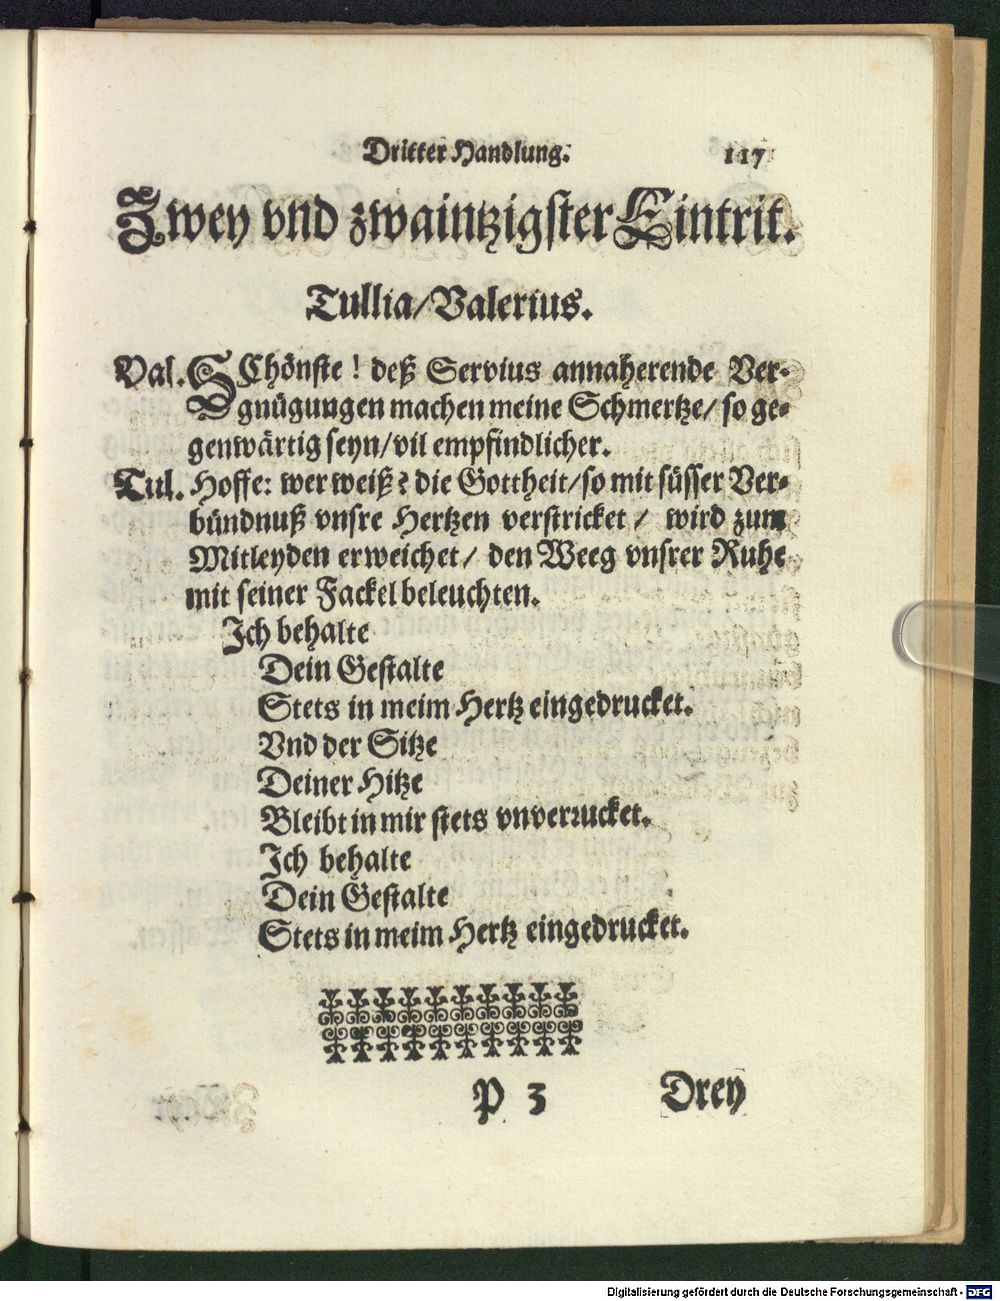 Dritter Handlung. 117
Zwey vnd zwaintzigster Eintrit.
Tullia/Valerius.
Val. SChönste! deß Servius annaherende Ver-
gnügungen machen meine Schmertze/ so ge-
genwärtig seyn/vil empfindlicher.
Tul. Hoffe: wer weiß? die Gottheit/so mit süsser Ver-
bündnuß vnsre Hertzen verstricket / wird zum
Mitleyden erweichet/ den Weeg vnsrer Ruhe
mit seiner Fackel beleuchten.
Ich behalte
Dein Gestalte
Stets in meim Hertz eingedrucket.
Vnd der Sitze
Deiner Hitze
Bleibt in mir stets vnverrucket.
Ich behalte
Dein Gestalte
Stets in meim Hertz eingedrucket.
P 3 Drey
Digitalisierung gefördert durch die Deutsche Forschungsgemeinschaft - DFG